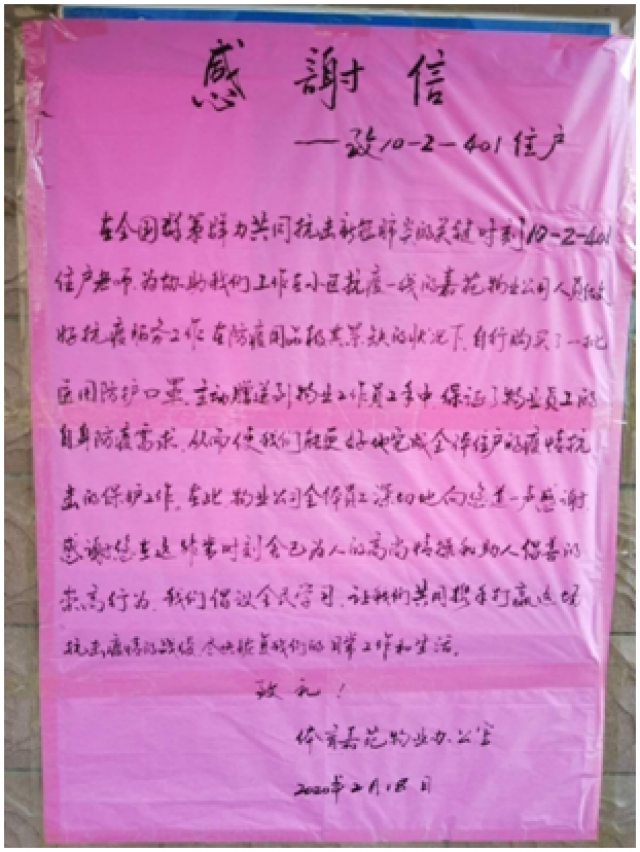 感謝信
——致10-2-401住户
在全国群策群力共同抗击新冠肺炎的关键时刻10-2-401
住户老师,为协助我们工作在小区抗疫一线的嘉苑物业公司人员做
好抗疫服务工作,在防疫用品极其紧缺的状况下,自行购买了一批
医用防护口罩,主动赠送到物业工作员工手中,保证了物业员工的
自身防疫需求,从而使我们能更好地完成全体住户的疫情抗
击的保护工作,在此物业公司全体员工深切地向您道一声感谢,
感谢您在这非常时刻舍己为人的高尚情操和助人倡善的
崇高行为,我们倡议全民学习,让我们共同携手打赢这场
抗击疫情的战役,尽快恢复我们的日常工作和生活。
致礼!
体育嘉苑物业办公室
2020年2月18日